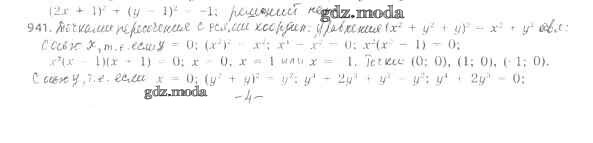 (2x + 1)² + (y − 1)² = −1; решений нет
gdz.moda
941. Точками пересечения с осями координ. уравнения (x² + y² + y)² = x² + y² явл.:
С осью x, т.е. если y = 0; (x²)² = x²; x⁴ − x² = 0; x²(x² − 1) = 0;
x²(x − 1)(x + 1) = 0; x = 0, x = 1 или x = −1. Точки (0; 0), (1; 0), (−1; 0).
С осью y, т.е. если x = 0; (y² + y)² = y²; y⁴ + 2y³ + y² = y²; y⁴ + 2y³ = 0;
gdz.moda
–4–